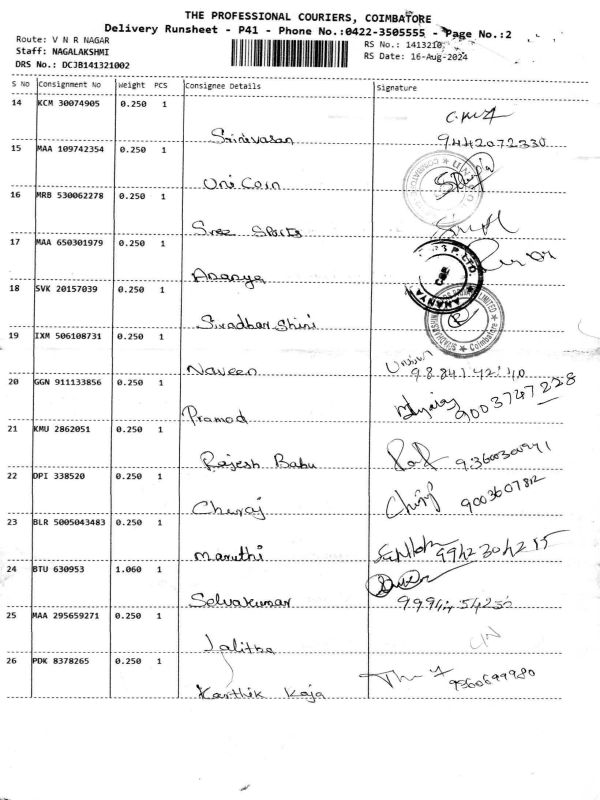 THE PROFESSIONAL COURIERS, COIMBATORE
Delivery Runsheet - P41 - Phone No.:0422-3505555 - Page No.:2
Route: V N R NAGAR
RS No.: 1413210
Staff: NAGALAKSHMI
RS Date: 16-Aug-2024
DRS No.: DCJB141321002
S No Consignment No Weight PCS Consignee Details Signature
14 KCM 30074905 0.250 1
Srinivasan 9442072330
15 MAA 109742354 0.250 1
Uni Coin
16 MRB 530062278 0.250 1
Sree Sports
17 MAA 650301979 0.250 1
Ananya
18 SVK 20157039 0.250 1
Sivadharshini
19 IXM 506108731 0.250 1
Naveen
20 GGN 911133856 0.250 1
Pramod 9003747228
21 KMU 2862051 0.250 1
Rajesh Babu
22 DPI 338520 0.250 1
Chiraj
23 BLR 5005043483 0.250 1
Maruthi
24 BTU 630953 1.060 1
Selvakumar
25 MAA 295659271 0.250 1
Lalitha
26 PDK 8378265 0.250 1
Karthik Raja